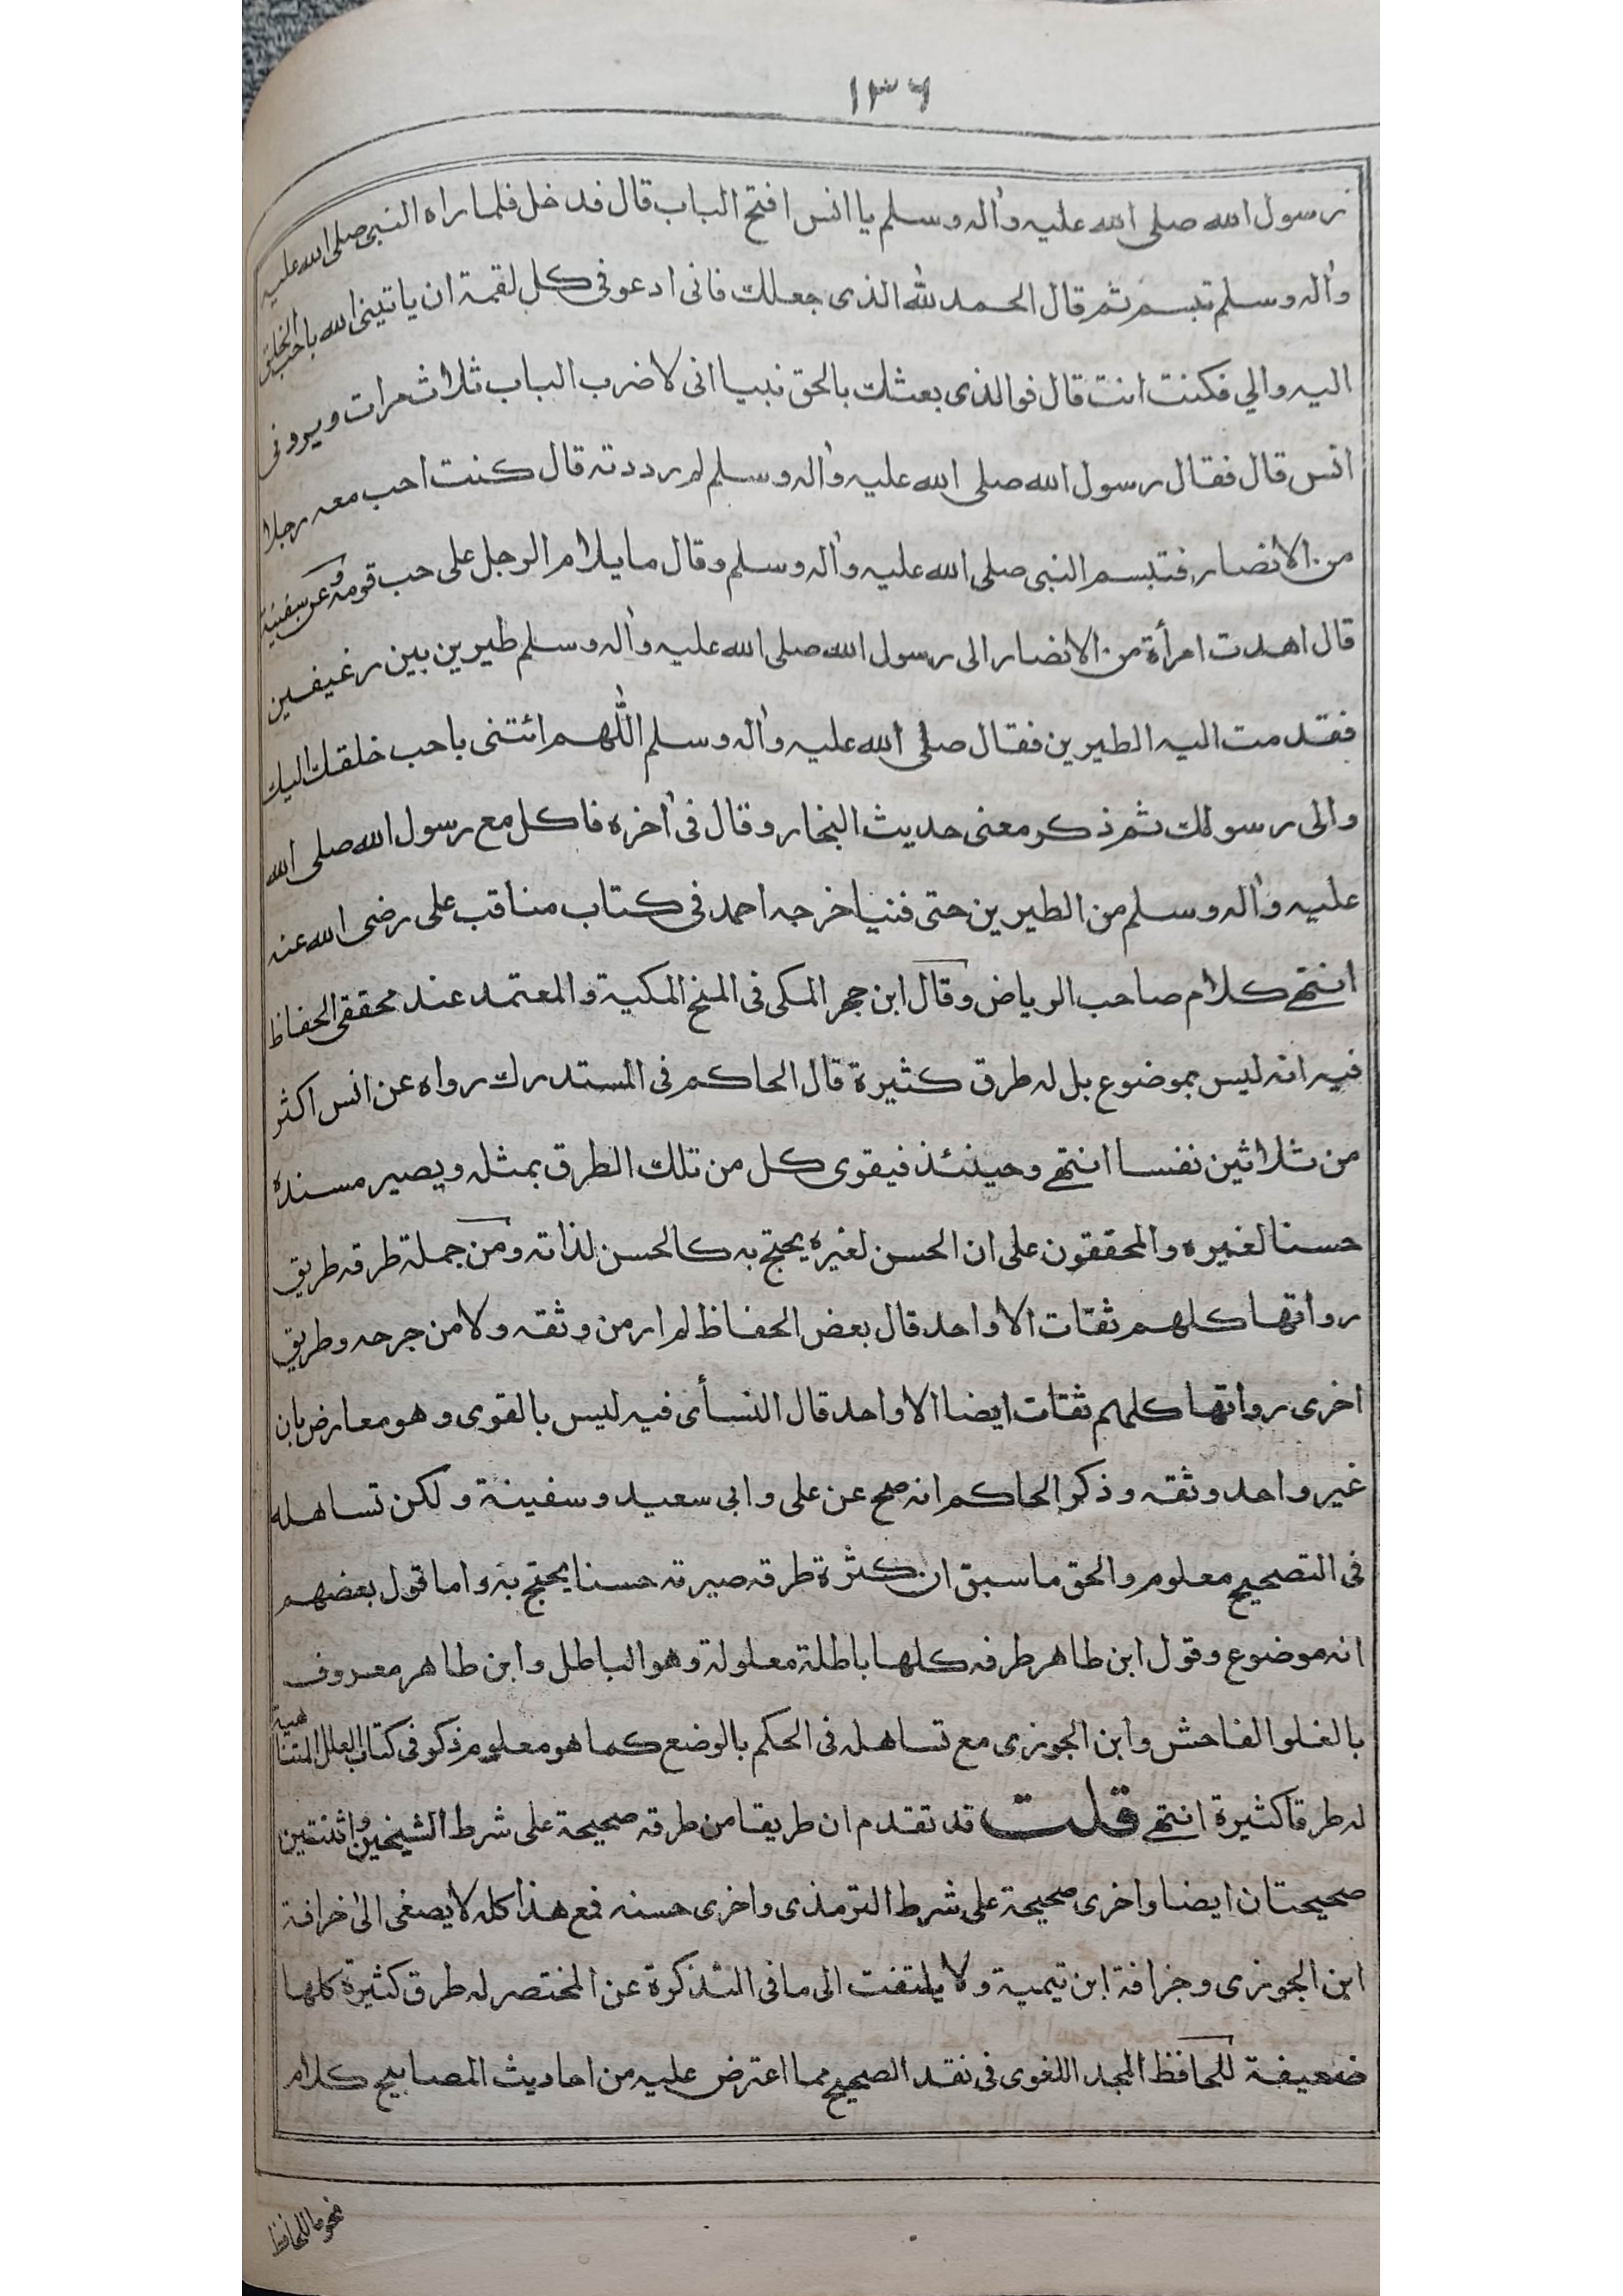 ١٣٦
رسول الله صلى الله عليه واله وسلم يا انس افتح الباب قال فدخل فلما راه النبي صلى الله عليه
واله وسلم تبسم ثم قال الحمد لله الذى جعلك فانى ادعو فى كل لقمة ان ياتينى الله باحب الخلق
اليه والي فكنت انت قال فوالذى بعثك بالحق نبيا انى لاضرب الباب ثلاث مرات ويردنى
انس قال فقال رسول الله صلى الله عليه واله وسلم لم رددته قال كنت احب معه رجلا
من الانصار فتبسم النبى صلى الله عليه واله وسلم وقال ما يلام الرجل على حب قومه وعن سفينة
قال اهدت امرأة من الانصار الى رسول الله صلى الله عليه واله وسلم طيرين بين رغيفين
فقدمت اليه الطيرين فقال صلى الله عليه واله وسلم اللهم ائتنى باحب خلقك اليك
والى رسولك ثم ذكر معنى حديث البخار وقال فى أخره فاكل مع رسول الله صلى الله
عليه واله وسلم من الطيرين حتى فنيا خرجه احمد فى كتاب مناقب على رضى الله عنه
انتهى كلام صاحب الرياض وقال ابن حجر المكى فى المنح المكية والمعتمد عند محققى الحفاظ
فيه انه ليس بموضوع بل له طرق كثيرة قال الحاكم فى المستدرك رواه عن انس اكثر
من ثلاثين نفسا انتهى وحينئذ فيقوى كل من تلك الطرق بمثله ويصير مسنده
حسنا لغيره والمحققون على ان الحسن لغيره يحتج به كالحسن لذاته ومن جملة طرقه طريق
رواتها كلهم ثقات الا واحد قال بعض الحفاظ لم ار من وثقه ولا من جرحه وطريق
اخرى رواتها كلهم ثقات ايضا الا واحد قال النسأى فيه ليس بالقوى وهو معارض بان
غير واحد وثقه وذكر الحاكم انه صح عن على وابى سعيد وسفينة ولكن تساهله
فى التصحيح معلوم والحق ما سبق ان كثرة طرقه صيرته حسنا يحتج به واما قول بعضهم
انه موضوع وقول ابن طاهر طرقه كلها باطلة معلولة وهو الباطل وابن طاهر معروف
بالغلو الفاحش وابن الجوزى مع تساهله فى الحكم بالوضع كما هو معلوم ذكر فى كتاب العلل المتناهية
له طرقا كثيرة انتهى قلت قد تقدم ان طريقا من طرقه صحيحة على شرط الشيخين واثنتين
صحيحتان ايضا واخرى صحيحة على شرط الترمذى واخرى حسنه فمع هذا كله لا يصغى الى خرافة
ابن الجوزى وجزافة ابن تيمية ولا يلتفت الى ما فى التذكرة عن المختصر له طرق كثيرة كلها
ضعيفة للحافظ المجد اللغوى فى نقد الصحيح مما اعترض عليه من احاديث المصابيح كلام